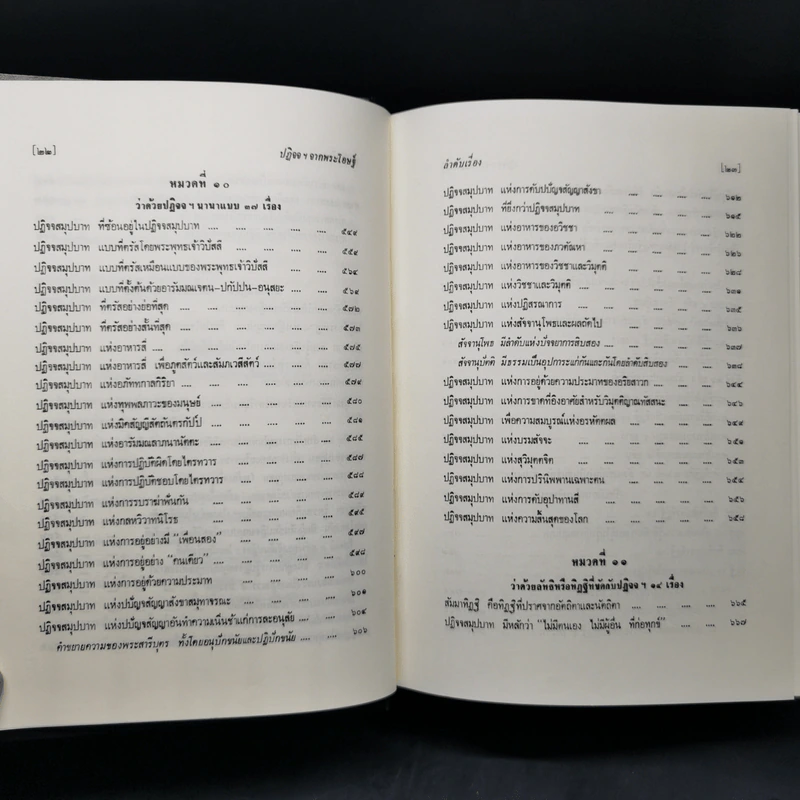 [๒๒] ปฏิจจ ฯ จากพระโอษฐ์
หมวดที่ ๑๐
ว่าด้วยปฏิจจ ฯ นานาแบบ ๓๗ เรื่อง
ปฏิจจสมุปบาท ที่ซ้อนอยู่ในปฏิจจสมุปบาท .... .... .... .... ๕๔๙
ปฏิจจสมุปบาท แบบที่ตรัสโดยพระพุทธเจ้าวิปัสสี .... .... ๕๕๙
ปฏิจจสมุปบาท แบบที่ตรัสเหมือนแบบของพระพุทธเจ้าวิปัสสี .... .... ๕๖๔
ปฏิจจสมุปบาท แบบที่ตั้งต้นด้วยอารัมมณเจตน-ปกัปปน-อนุสยะ .... .... ๕๖๙
ปฏิจจสมุปบาท ที่ตรัสอย่างย่อที่สุด .... .... .... .... ๕๗๒
ปฏิจจสมุปบาท ที่ตรัสอย่างสั้นที่สุด .... .... .... .... ๕๗๓
ปฏิจจสมุปบาท แห่งอาหารสี่ .... .... .... .... .... ๕๗๕
ปฏิจจสมุปบาท แห่งอาหารสี่ เพื่อภูตสัตว์และสัมภเวสีสัตว์ .... .... ๕๗๗
ปฏิจจสมุปบาท แห่งอภัททกาลกิริยา .... .... .... .... ๕๗๙
ปฏิจจสมุปบาท แห่งทุพพลภาวะของมนุษย์ .... .... .... ๕๘๐
ปฏิจจสมุปบาท แห่งมิคสัญญีสัตถันตรกัปป์ .... .... .... ๕๘๑
ปฏิจจสมุปบาท แห่งอารัมมณลาภนานัตตะ .... .... .... ๕๘๕
ปฏิจจสมุปบาท แห่งการปฏิบัติผิดโดยไตรทวาร .... .... .... ๕๘๗
ปฏิจจสมุปบาท แห่งการปฏิบัติชอบโดยไตรทวาร .... .... .... ๕๘๘
ปฏิจจสมุปบาท แห่งการรบราฆ่าฟันกัน .... .... .... .... ๕๘๙
ปฏิจจสมุปบาท แห่งกลหวิวาทนิโรธ .... .... .... .... ๕๙๕
ปฏิจจสมุปบาท แห่งการอยู่อย่างมี “เพื่อนสอง” .... .... .... ๕๙๗
ปฏิจจสมุปบาท แห่งการอยู่อย่าง “คนเดียว” .... .... .... .... ๕๙๘
ปฏิจจสมุปบาท แห่งการอยู่ด้วยความประมาท .... .... .... ๖๐๐
ปฏิจจสมุปบาท แห่งปปัญจสัญญาสังขาสมุทาจรณะ .... .... .... ๖๐๑
ปฏิจจสมุปบาท แห่งปปัญจสัญญาอันทำความเนิ่นช้าแก่การละอนุสัย .... .... ๖๐๔
คำขยายความของพระสารีบุตร ทั้งโดยอนุปักขนัยและปฏิปักขนัย .... .... ๖๐๖
ลำดับเรื่อง [๒๓]
ปฏิจจสมุปบาท แห่งการดับปปัญจสัญญาสังขา .... .... .... ๖๑๒
ปฏิจจสมุปบาท ที่ยิ่งกว่าปฏิจจสมุปบาท .... .... .... .... ๖๑๕
ปฏิจจสมุปบาท แห่งอาหารของอวิชชา .... .... .... .... ๖๒๒
ปฏิจจสมุปบาท แห่งอาหารของภวตัณหา .... .... .... .... ๖๒๖
ปฏิจจสมุปบาท แห่งอาหารของวิชชาและวิมุตติ .... .... .... ๖๒๘
ปฏิจจสมุปบาท แห่งวิชชาและวิมุตติ .... .... .... .... ๖๓๑
ปฏิจจสมุปบาท แห่งปฏิสรณาการ .... .... .... .... ๖๓๕
ปฏิจจสมุปบาท แห่งสัจจานุโพธและผลถัดไป .... .... .... ๖๓๖
สัจจานุโพธ มีลำดับแห่งปัจจยาการสิบสอง .... .... .... ๖๓๗
สัจจานุปัตติ มีธรรมเป็นอุปการะแก่กันและกันโดยลำดับสิบสอง .... .... ๖๓๘
ปฏิจจสมุปบาท แห่งการอยู่ด้วยความประมาทของอริยสาวก .... .... ๖๔๔
ปฏิจจสมุปบาท แห่งการขาดที่อิงอาศัยสำหรับวิมุตติญาณทัสสนะ .... .... ๖๔๖
ปฏิจจสมุปบาท เพื่อความสมบูรณ์แห่งอรหัตตผล .... .... .... ๖๔๙
ปฏิจจสมุปบาท แห่งบรมสัจจะ .... .... .... .... ๖๕๑
ปฏิจจสมุปบาท แห่งสุวิมุตตจิต .... .... .... .... ๖๕๓
ปฏิจจสมุปบาท แห่งการปรินิพพานเฉพาะตน .... .... .... .... ๖๕๔
ปฏิจจสมุปบาท แห่งการดับอุปาทานสี่ .... .... .... .... ๖๕๖
ปฏิจจสมุปบาท แห่งความสิ้นสุดของโลก .... .... .... .... ๖๕๘
หมวดที่ ๑๑
ว่าด้วยลัทธิหรือทิฏฐิที่ขัดกับปฏิจจ ฯ ๑๔ เรื่อง
สัมมาทิฏฐิ คือทิฏฐิที่ปราศจากอัตถิตาและนัตถิตา .... .... .... ๖๖๕
ปฏิจจสมุปบาท มีหลักว่า “ไม่มีตนเอง ไม่มีผู้อื่น ที่ก่อทุกข์” .... .... ๖๖๗